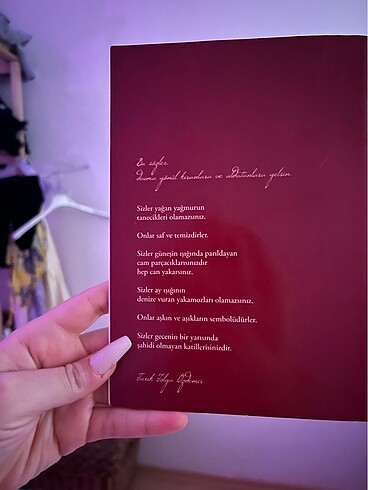 Bu sözler,
daima gönül kıranlara ve aldatanlara gelsin.
Sizler yağan yağmurun
tanecikleri olamazsınız.
Onlar saf ve temizdirler.
Sizler güneşin ışığında parıldayan
cam parçacıklarısınızdır
hep can yakarsınız.
Sizler ay ışığının
denize vuran yakamozları olamazsınız.
Onlar aşkın ve aşıkların sembolüdürler.
Sizler gecenin bir yarısında
şahidi olmayan katillerisinizdir.
Tarık Tolga Özdemir